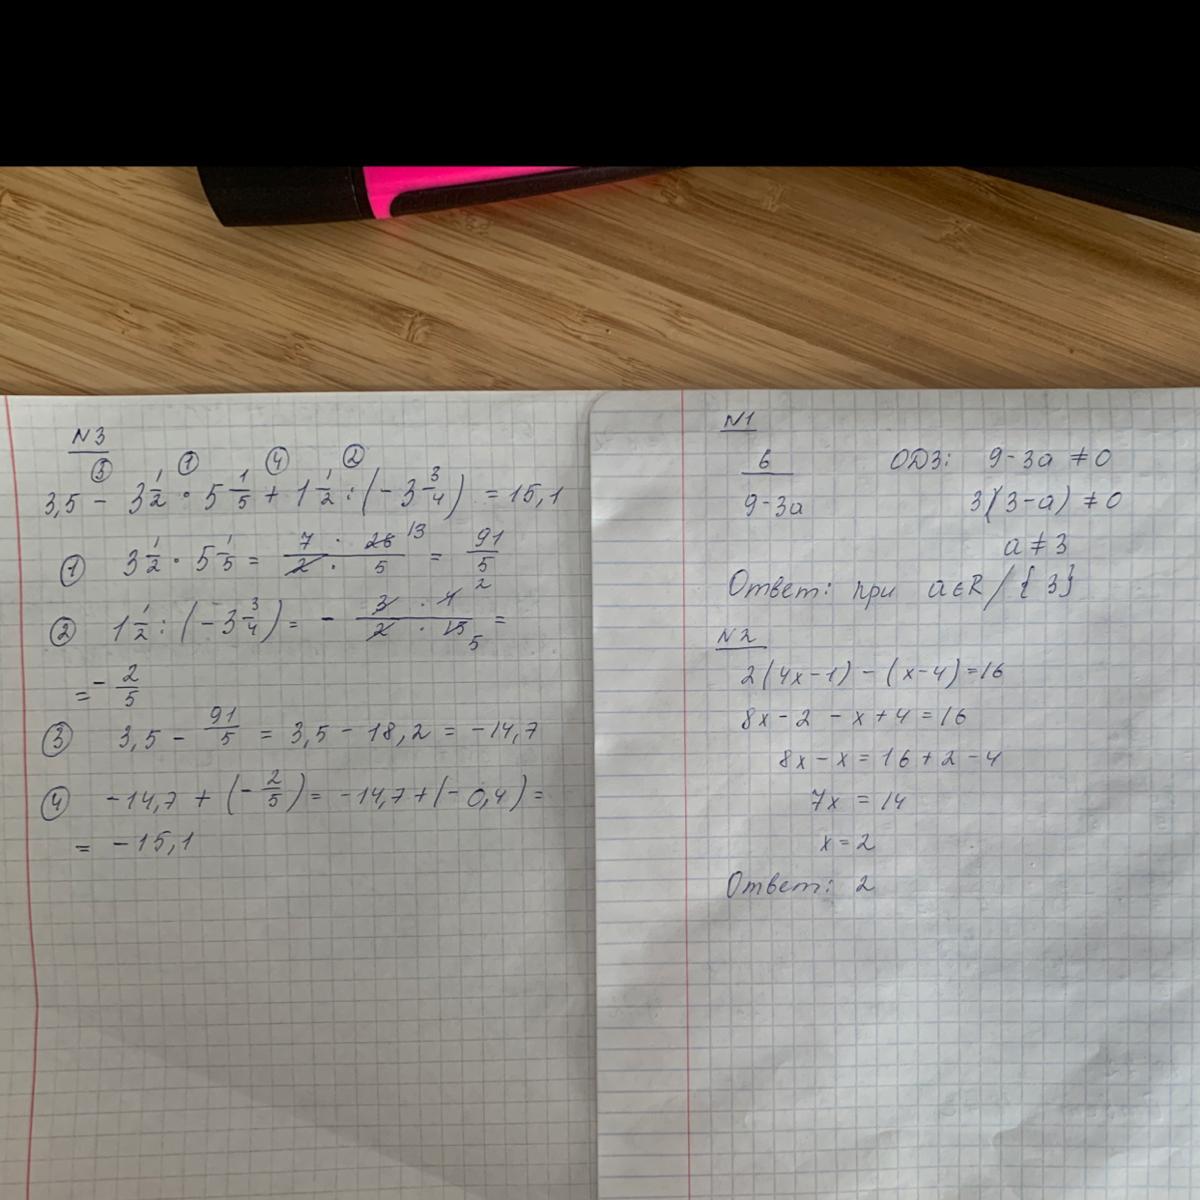 N3
③ ① ④ ②
3,5 - 3 1/2 · 5 1/5 + 1 1/2 : (- 3 3/4) = 15,1
① 3 1/2 · 5 1/5 = 7 · 26 13 / 2 · 5 = 91/5
② 1 1/2 : (- 3 3/4) = - 3 · 4 2 / 2 · 15 5 =
= - 2/5
③ 3,5 - 91/5 = 3,5 - 18,2 = -14,7
④ -14,7 + (- 2/5) = -14,7 + (- 0,4) =
= -15,1
N1
6 / 9-3a ОДЗ: 9-3a ≠ 0
3(3-a) ≠ 0
a ≠ 3
Ответ: при a∈R / {3}
N2
2(4x-1) - (x-4) = 16
8x - 2 - x + 4 = 16
8x - x = 16 + 2 - 4
7x = 14
x = 2
Ответ: 2